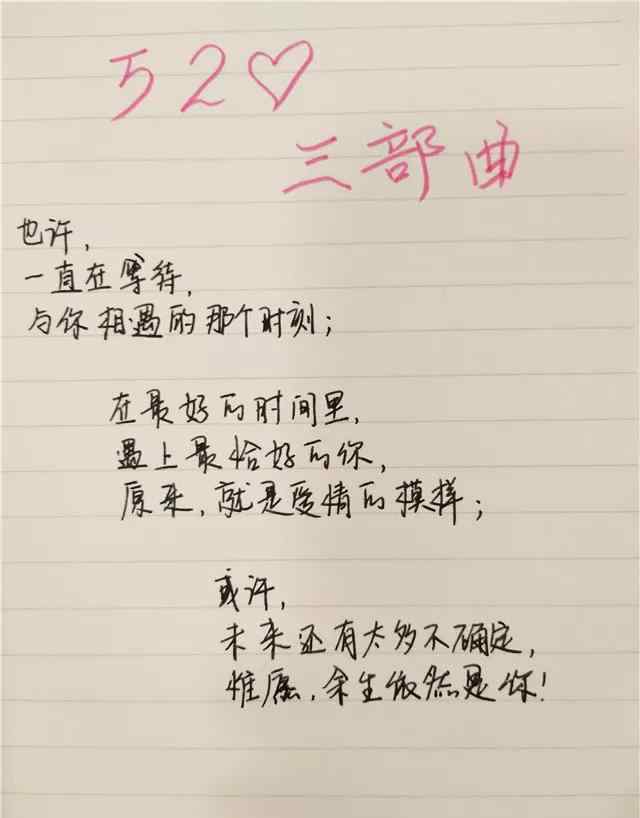 520
三部曲
也许，
一直在等待，
与你相遇的那个时刻；
在最好的时间里，
遇上最恰好的你，
原来，就是爱情的模样；
或许，
未来还有太多不确定，
惟愿，余生依然是你！